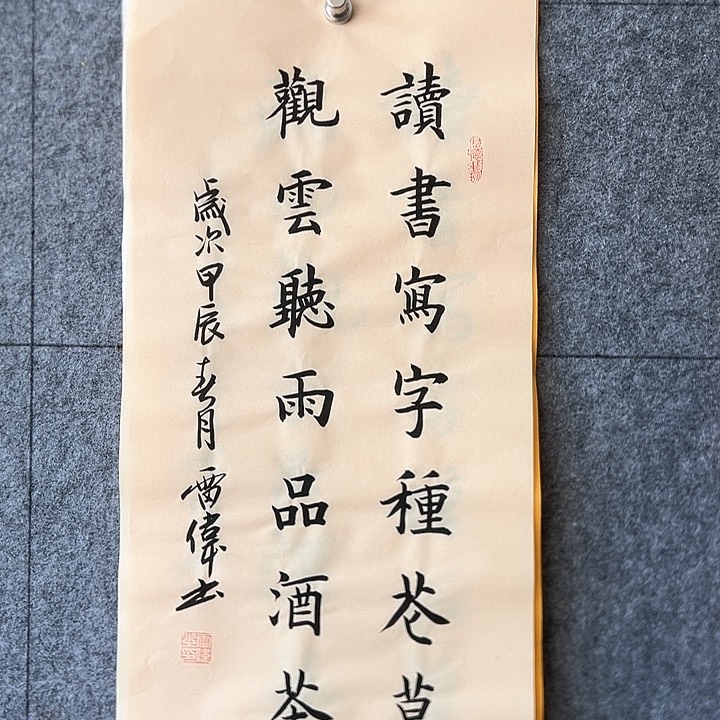 讀書寫字種花草
觀雲聽雨品酒茶
歲次甲辰春月雷偉书